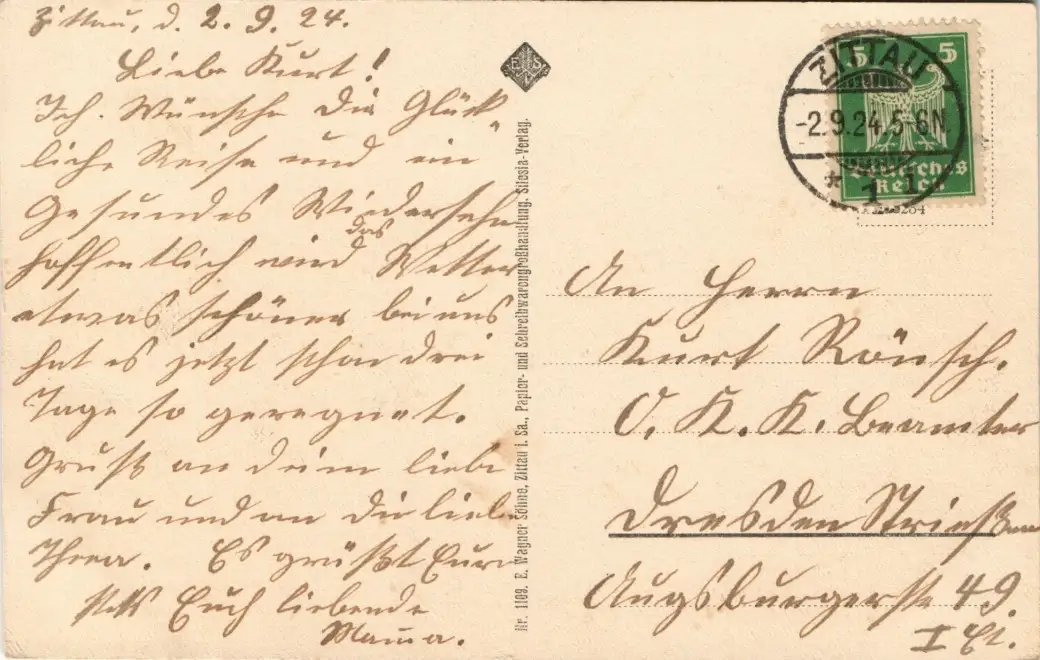 Zittau, d. 2. 9. 24.
Liebe Kurt!
Ich Wünsche Die Glück-
liche Reise und ein
Gesundes Wiedersehn
das
hoffentlich wird Wetter
etwas schöner bei uns
hat es jetzt schon drei
Tage so geregnet.
Gruß an dein liebe
Frau und an die liebe
Thea. Es grüßt Eure
stets Euch liebende
Mama.
E S
Nr. 1109. E. Wagner Söhne, Zittau i. Sa., Papier- und Schreibwarengroßhandlung. Silesia-Verlag.
ZITTAU
-2.9.24.5-6N
* 1
5 5
Deutsches
Reich
An Herrn
Kurt Rönsch.
O. K. K. Beamter
Dresden Striesen
Augsburgerst 49.
I Et.